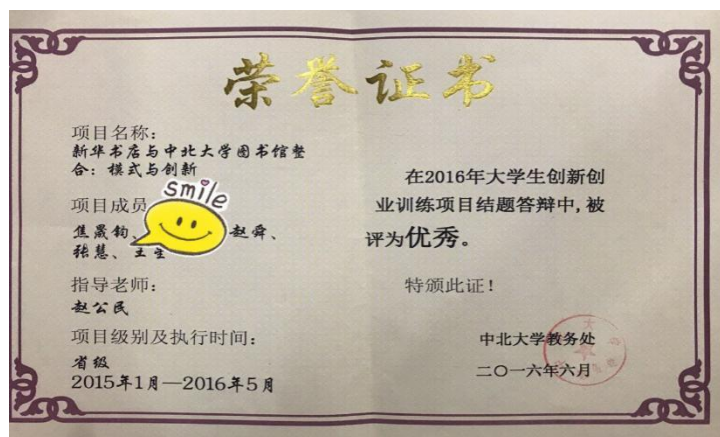 荣誉证书
项目名称:
新华书店与中北大学图书馆整
合: 模式与创新
smile
项目成员
焦晟钧、 赵舜、
张慧、王生
指导老师:
赵公民
项目级别及执行时间:
省级
2015年1月—2016年5月
在2016年大学生创新创
业训练项目结题答辩中,被
评为优秀。
特颁此证!
中北大学教务处
二〇一六年六月